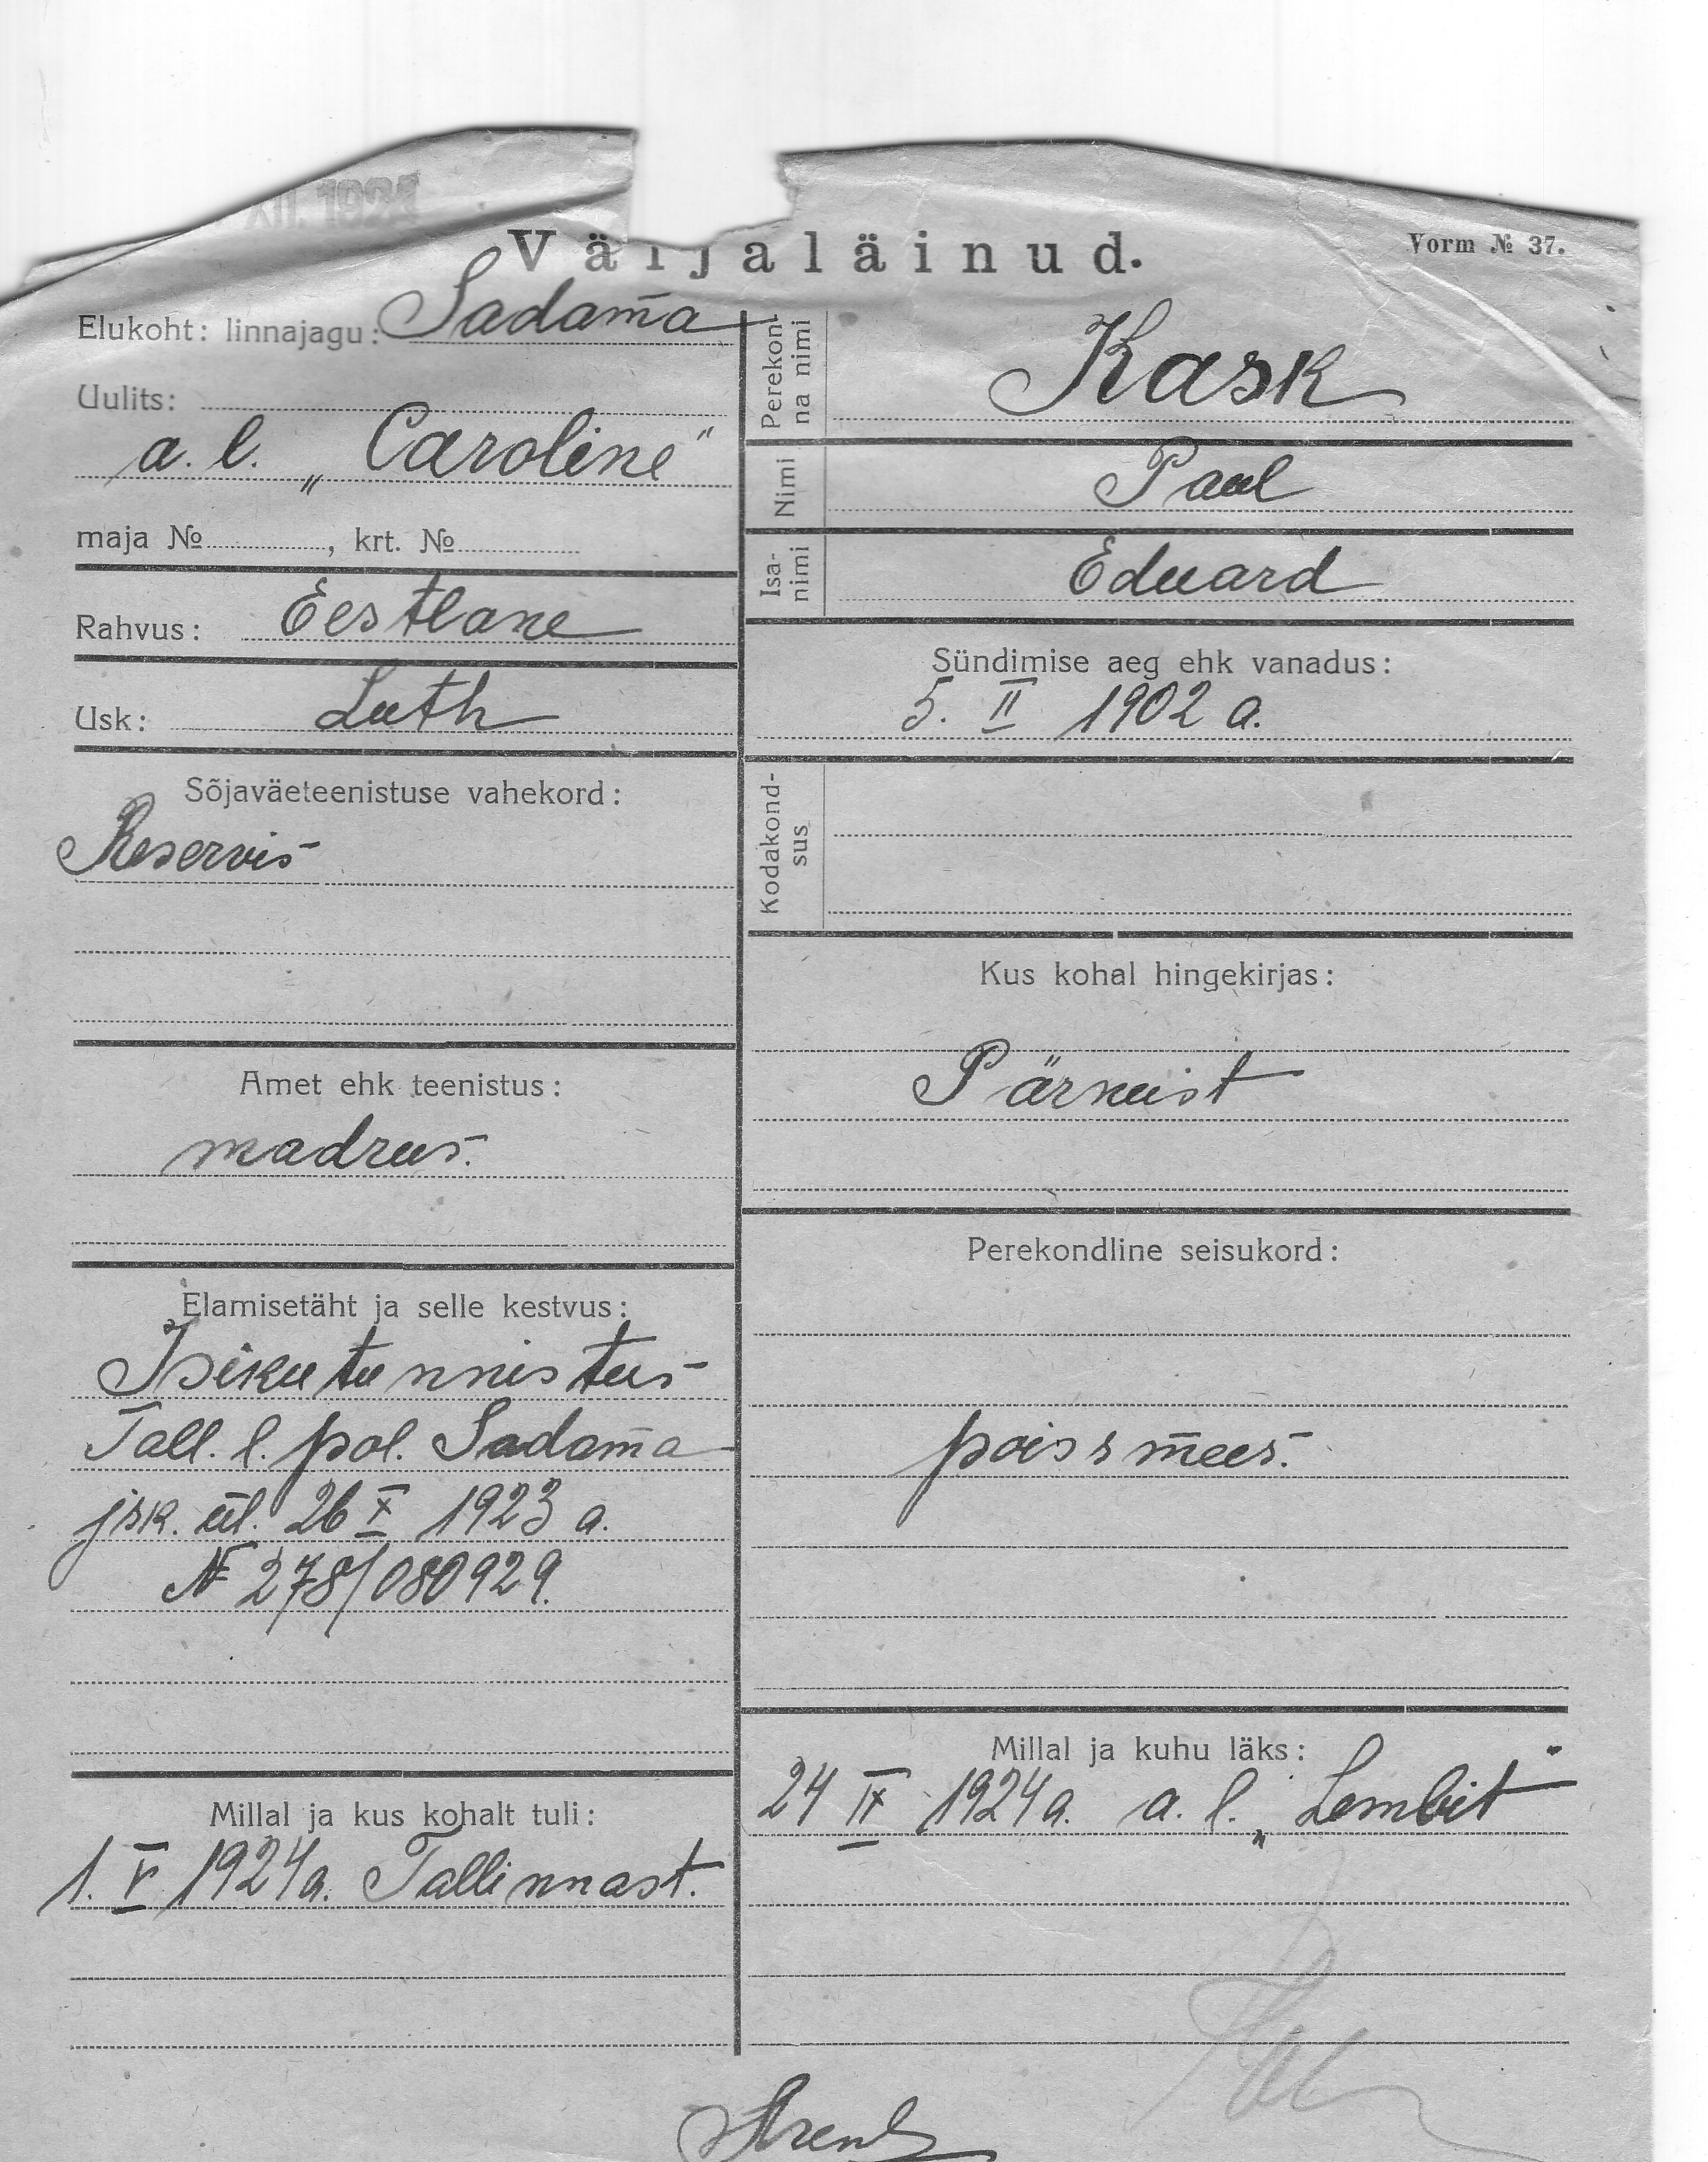 XII. 1924
Väljaläinud.
Vorm № 37.
Elukoht: linnajagu: Sadama
Uulits:
a. l. „Caroline"
maja № , krt. №
Rahvus: Eestlane
Usk: Luth
Sõjaväeteenistuse vahekord:
Reservis
Amet ehk teenistus:
madrus.
Elamisetäht ja selle kestvus:
Isikutunnistus
Tall. l. pol. Sadama
jsk. ül. 26 X 1923 a.
№ 278/080929.
Millal ja kus kohalt tuli:
1. V 1924 a. Tallinnast.
Perekon-
na nimi
Kask
Nimi
Paul
Isa-
nimi
Eduard
Sündimise aeg ehk vanadus:
5. II 1902 a.
Kodakond-
sus
Kus kohal hingekirjas:
Pärnust
Perekondline seisukord:
poissmees.
Millal ja kuhu läks:
24 IX 1924 a. a. l. „Lembit"